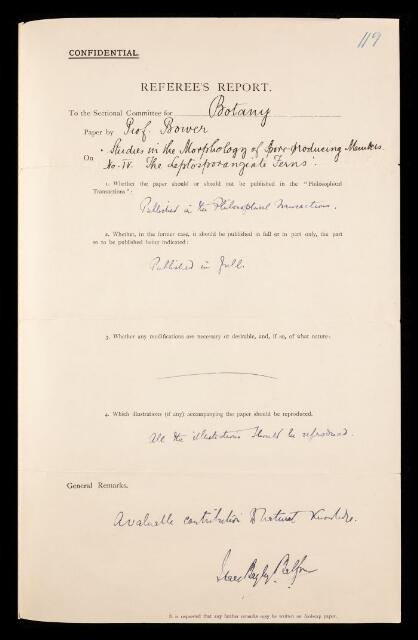 CONFIDENTIAL.
119
REFEREE'S REPORT.
To the Sectional Committee for Botany
Paper by Prof. Bower
On "Studies in the Morphology of Spore-producing Members.
No. IV. The Leptosporangiate Ferns".
1. Whether the paper should or should not be published in the "Philosophical
Transactions":
Published in the Philosophical Transactions.
2. Whether, in the former case, it should be published in full or in part only, the part
so to be published being indicated:
Published in full.
3. Whether any modifications are necessary or desirable, and, if so, of what nature:
4. Which illustrations (if any) accompanying the paper should be reproduced.
All the illustrations should be reproduced.
General Remarks.
A valuable contribution to natural knowledge.
Isaac Bayley Balfour
It is requested that any further remarks may be written on foolscap paper.